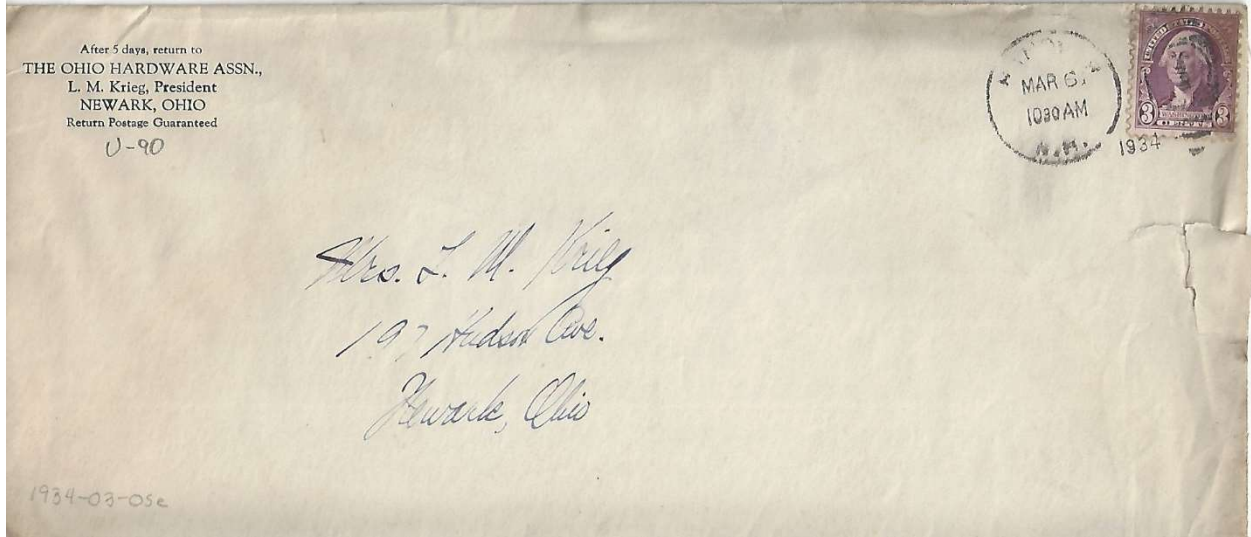 After 5 days, return to
THE OHIO HARDWARE ASSN.,
L. M. Krieg, President
NEWARK, OHIO
Return Postage Guaranteed
U-90
MAR 6
1030 AM
N.H.
1934
UNITED STATES POSTAGE
3 WASHINGTON 3
Mrs. L. M. Krieg
197 Hudson Ave.
Newark, Ohio
1934-03-05e